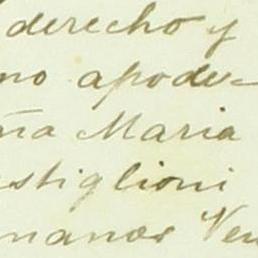 derecho y
no apode-
ña Maria
stiglioni
manos Ven